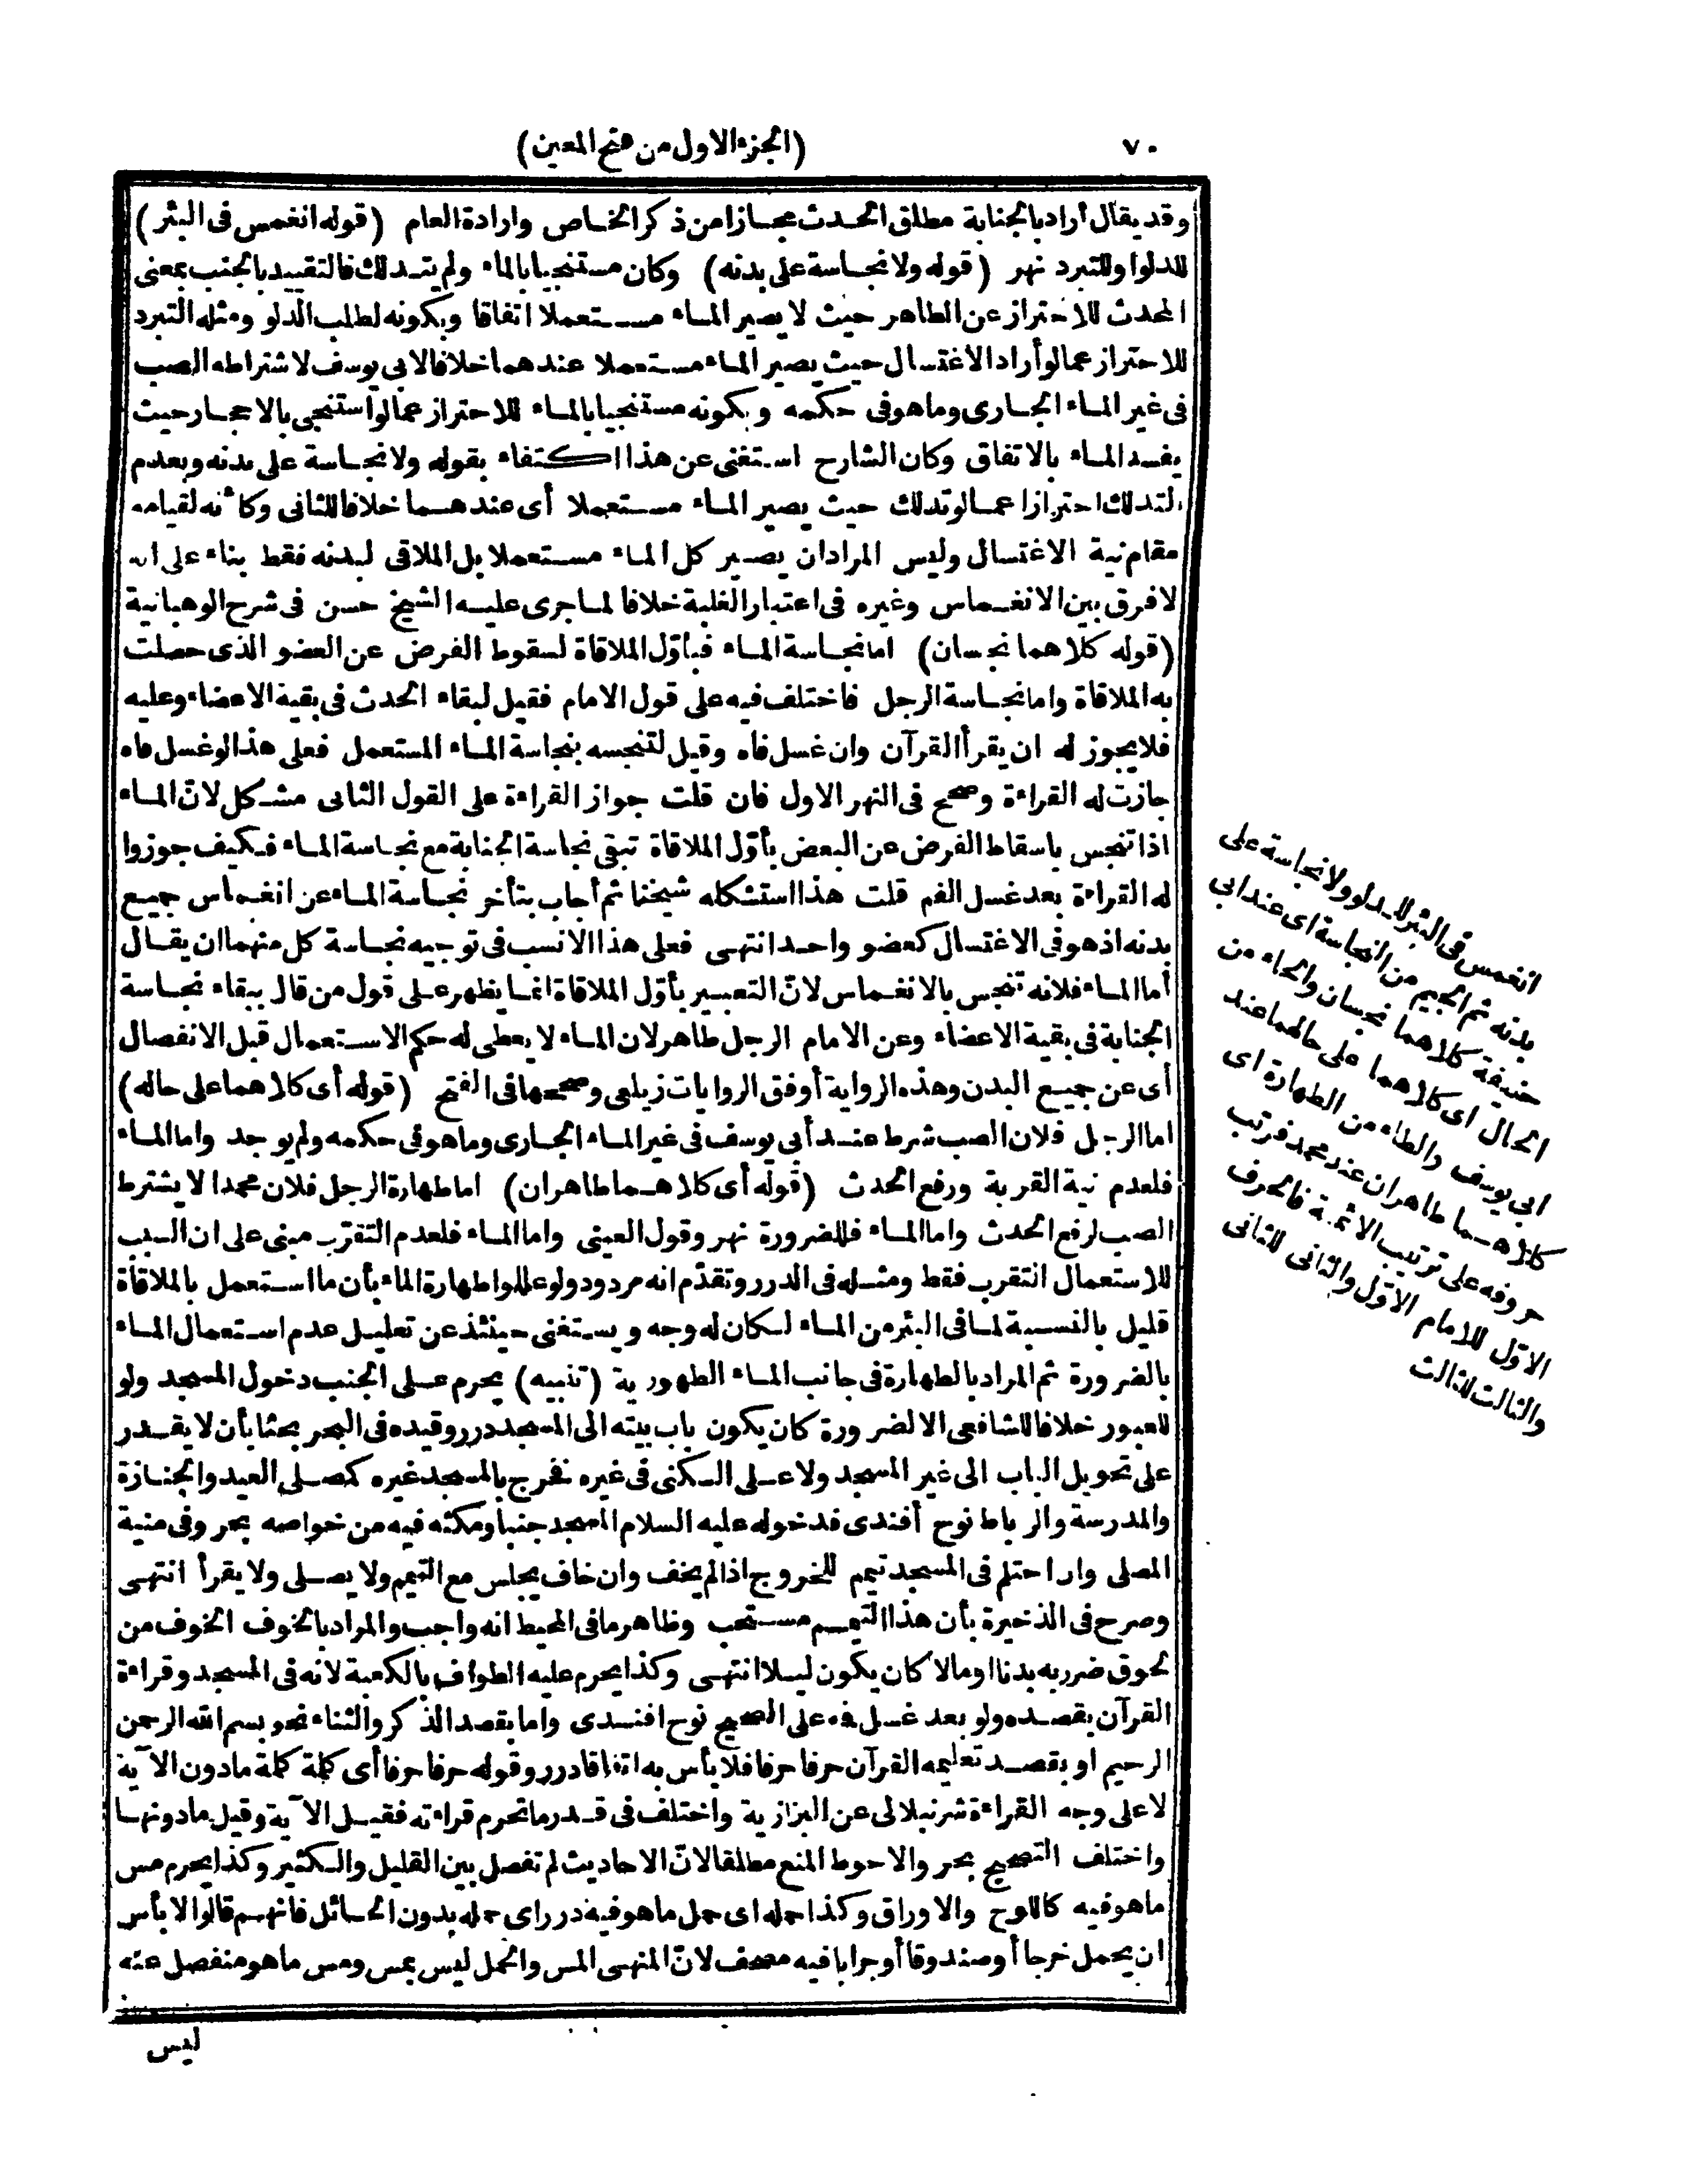 ٧٠
(الجزء الاول من فتح المعين)
وقد يقال أراد بالجنابة مطلق الحدث مجازا من ذكر الخاص وارادة العام (قوله انغمس فى البئر)
للدلو او للتبرد نهر (قوله ولا نجاسة على بدنه) وكان مستنجيا بالماء ولم يتدلك فالتقييد بالجنب بمعنى
المحدث للاحتراز عن الطاهر حيث لا يصير الماء مستعملا اتفاقا وبكونه لطلب الدلو ومثله التبرد
للاحتراز عما لو أراد الاغتسال حيث يصير الماء مستعملا عندهما خلافا لابى يوسف لاشتراطه الصب
فى غير الماء الجارى وما هو فى حكمه وبكونه مستنجيا بالماء للاحتراز عما لو استنجى بالاحجار حيث
يفسد الماء بالاتفاق وكان الشارح استغنى عن هذا اكتفاء بقوله ولا نجاسة على بدنه وبعدم
التدلك احترازا عما لو تدلك حيث يصير الماء مستعملا أى عندهما خلافا للثانى وكأنه لقيامه
مقام نية الاغتسال وليس المراد ان يصير كل الماء مستعملا بل الملاقى لبدنه فقط بناء على انه
لا فرق بين الانغماس وغيره فى اعتبار الغلبة خلافا لما جرى عليه الشيخ حسن فى شرح الوهبانية
(قوله كلاهما نجسان) اما نجاسة الماء فبأول الملاقاة لسقوط الفرض عن العضو الذى حصلت
به الملاقاة واما نجاسة الرجل فاختلف فيه على قول الامام فقيل لبقاء الحدث فى بقية الاعضاء وعليه
فلا يجوز له ان يقرأ القرآن وان غسل فاه وقيل لتنجسه بنجاسة الماء المستعمل فعلى هذا لو غسل فاه
جازت له القراءة وصحح فى النهر الاول فان قلت جواز القراءة على القول الثانى مشكل لانّ الماء
اذا تنجس باسقاط الفرض عن البعض بأوّل الملاقاة تبقى نجاسة الجنابة مع نجاسة الماء فكيف جوزوا
له القراءة بعد غسل الفم قلت هذا استشكله شيخنا ثم أجاب بتأخر نجاسة الماء عن انغماس جميع
بدنه اذ هو فى الاغتسال كعضو واحد انتهى فعلى هذا الانسب فى توجيه نجاسة كل منهما ان يقال
أما الماء فلانه تنجس بالانغماس لانّ التعبير بأوّل الملاقاة انما يظهر على قول من قال ببقاء نجاسة
الجنابة فى بقية الاعضاء وعن الامام الرجل طاهر لان الماء لا يعطى له حكم الاستعمال قبل الانفصال
أى عن جميع البدن وهذه الرواية أوفق الروايات زيلعى وصححها فى الفتح (قوله أى كلاهما على حاله)
اما الرجل فلان الصب شرط عند أبى يوسف فى غير الماء الجارى وما هو فى حكمه ولم يوجد واما الماء
فلعدم نية القربة ورفع الحدث (قوله أى كلاهما طاهران) اما طهارة الرجل فلان محمدا لا يشترط
الصب لرفع الحدث واما الماء فللضرورة نهر وقول العينى واما الماء فلعدم التقرّب مبنى على ان السبب
للاستعمال التقرب فقط ومثله فى الدرر وتقدّم انه مردود ولو عللوا طهارة الماء بأن ما استعمل بالملاقاة
قليل بالنسبة لما فى البئر من الماء لكان له وجه ويستغنى حينئذ عن تعليل عدم استعمال الماء
بالضرورة ثم المراد بالطهارة فى جانب الماء الطهورية (تنبيه) يحرم على الجنب دخول المسجد ولو
للعبور خلافا للشافعى الا لضرورة كان يكون باب بيته الى المسجد درر وقيده فى البحر بحثا بأن لا يقدر
على تحويل الباب الى غير المسجد ولا على السكنى فى غيره نخرج بالمسجد غيره كمصلى العيد والجنازة
والمدرسة والرباط نوح أفندى فدخوله عليه السلام المسجد جنبا ومكثه فيه من خواصه بحر وفى منية
المصلى وان احتلم فى المسجد تيمم للخروج اذا لم يخف وان خاف يجلس مع التيمم ولا يصلى ولا يقرأ انتهى
وصرح فى الذخيرة بأن هذا التيمم مستحب وظاهر ما فى المحيط انه واجب والمراد بالخوف الخوف من
لحوق ضرر به بدنا او مالا كان يكون ليلا انتهى وكذا يحرم عليه الطواف بالكعبة لانه فى المسجد وقراءة
القرآن بقصده ولو بعد غسل فمه على الصحيح نوح افندى واما بقصد الذكر والثناء نحو بسم الله الرحمن
الرحيم او بقصد تعليمه القرآن حرفا حرفا فلا بأس به اتفاقا درر وقوله حرفا حرفا أى كلمة كلمة مادون الآية
لا على وجه القراءة شرنبلالى عن البزازية واختلف فى قدر ما تحرم قراءته فقيل الآية وقيل مادونها
واختلف التصحيح بحر والاحوط المنع مطلقا لانّ الاحاديث لم تفصل بين القليل والكثير وكذا يحرم مس
ما هو فيه كاللوح والاوراق وكذا حمله اى حمل ما هو فيه درر اى حمله بدون الحائل فانهم قالوا لا بأس
ان يحمل خرجا أو صندوقا أو جرابا فيه مصحف لانّ المنهى المس والحمل ليس بمس ومس ما هو منفصل عنه
ليس
انغمس فى البئر للدلو ولا نجاسة على
بدنه ثم الجيم من النجاسة اى عند ابى
حنيفة كلاهما نجسان والحاء من
الحال اى كلاهما على حالهما عند
ابى يوسف والطاء من الطهارة اى
كلاهما طاهران عند محمد فرتب
حروفه على ترتيب الائمة فالحرف
الاوّل للامام الاوّل والثانى للثانى
والثالث للثالث